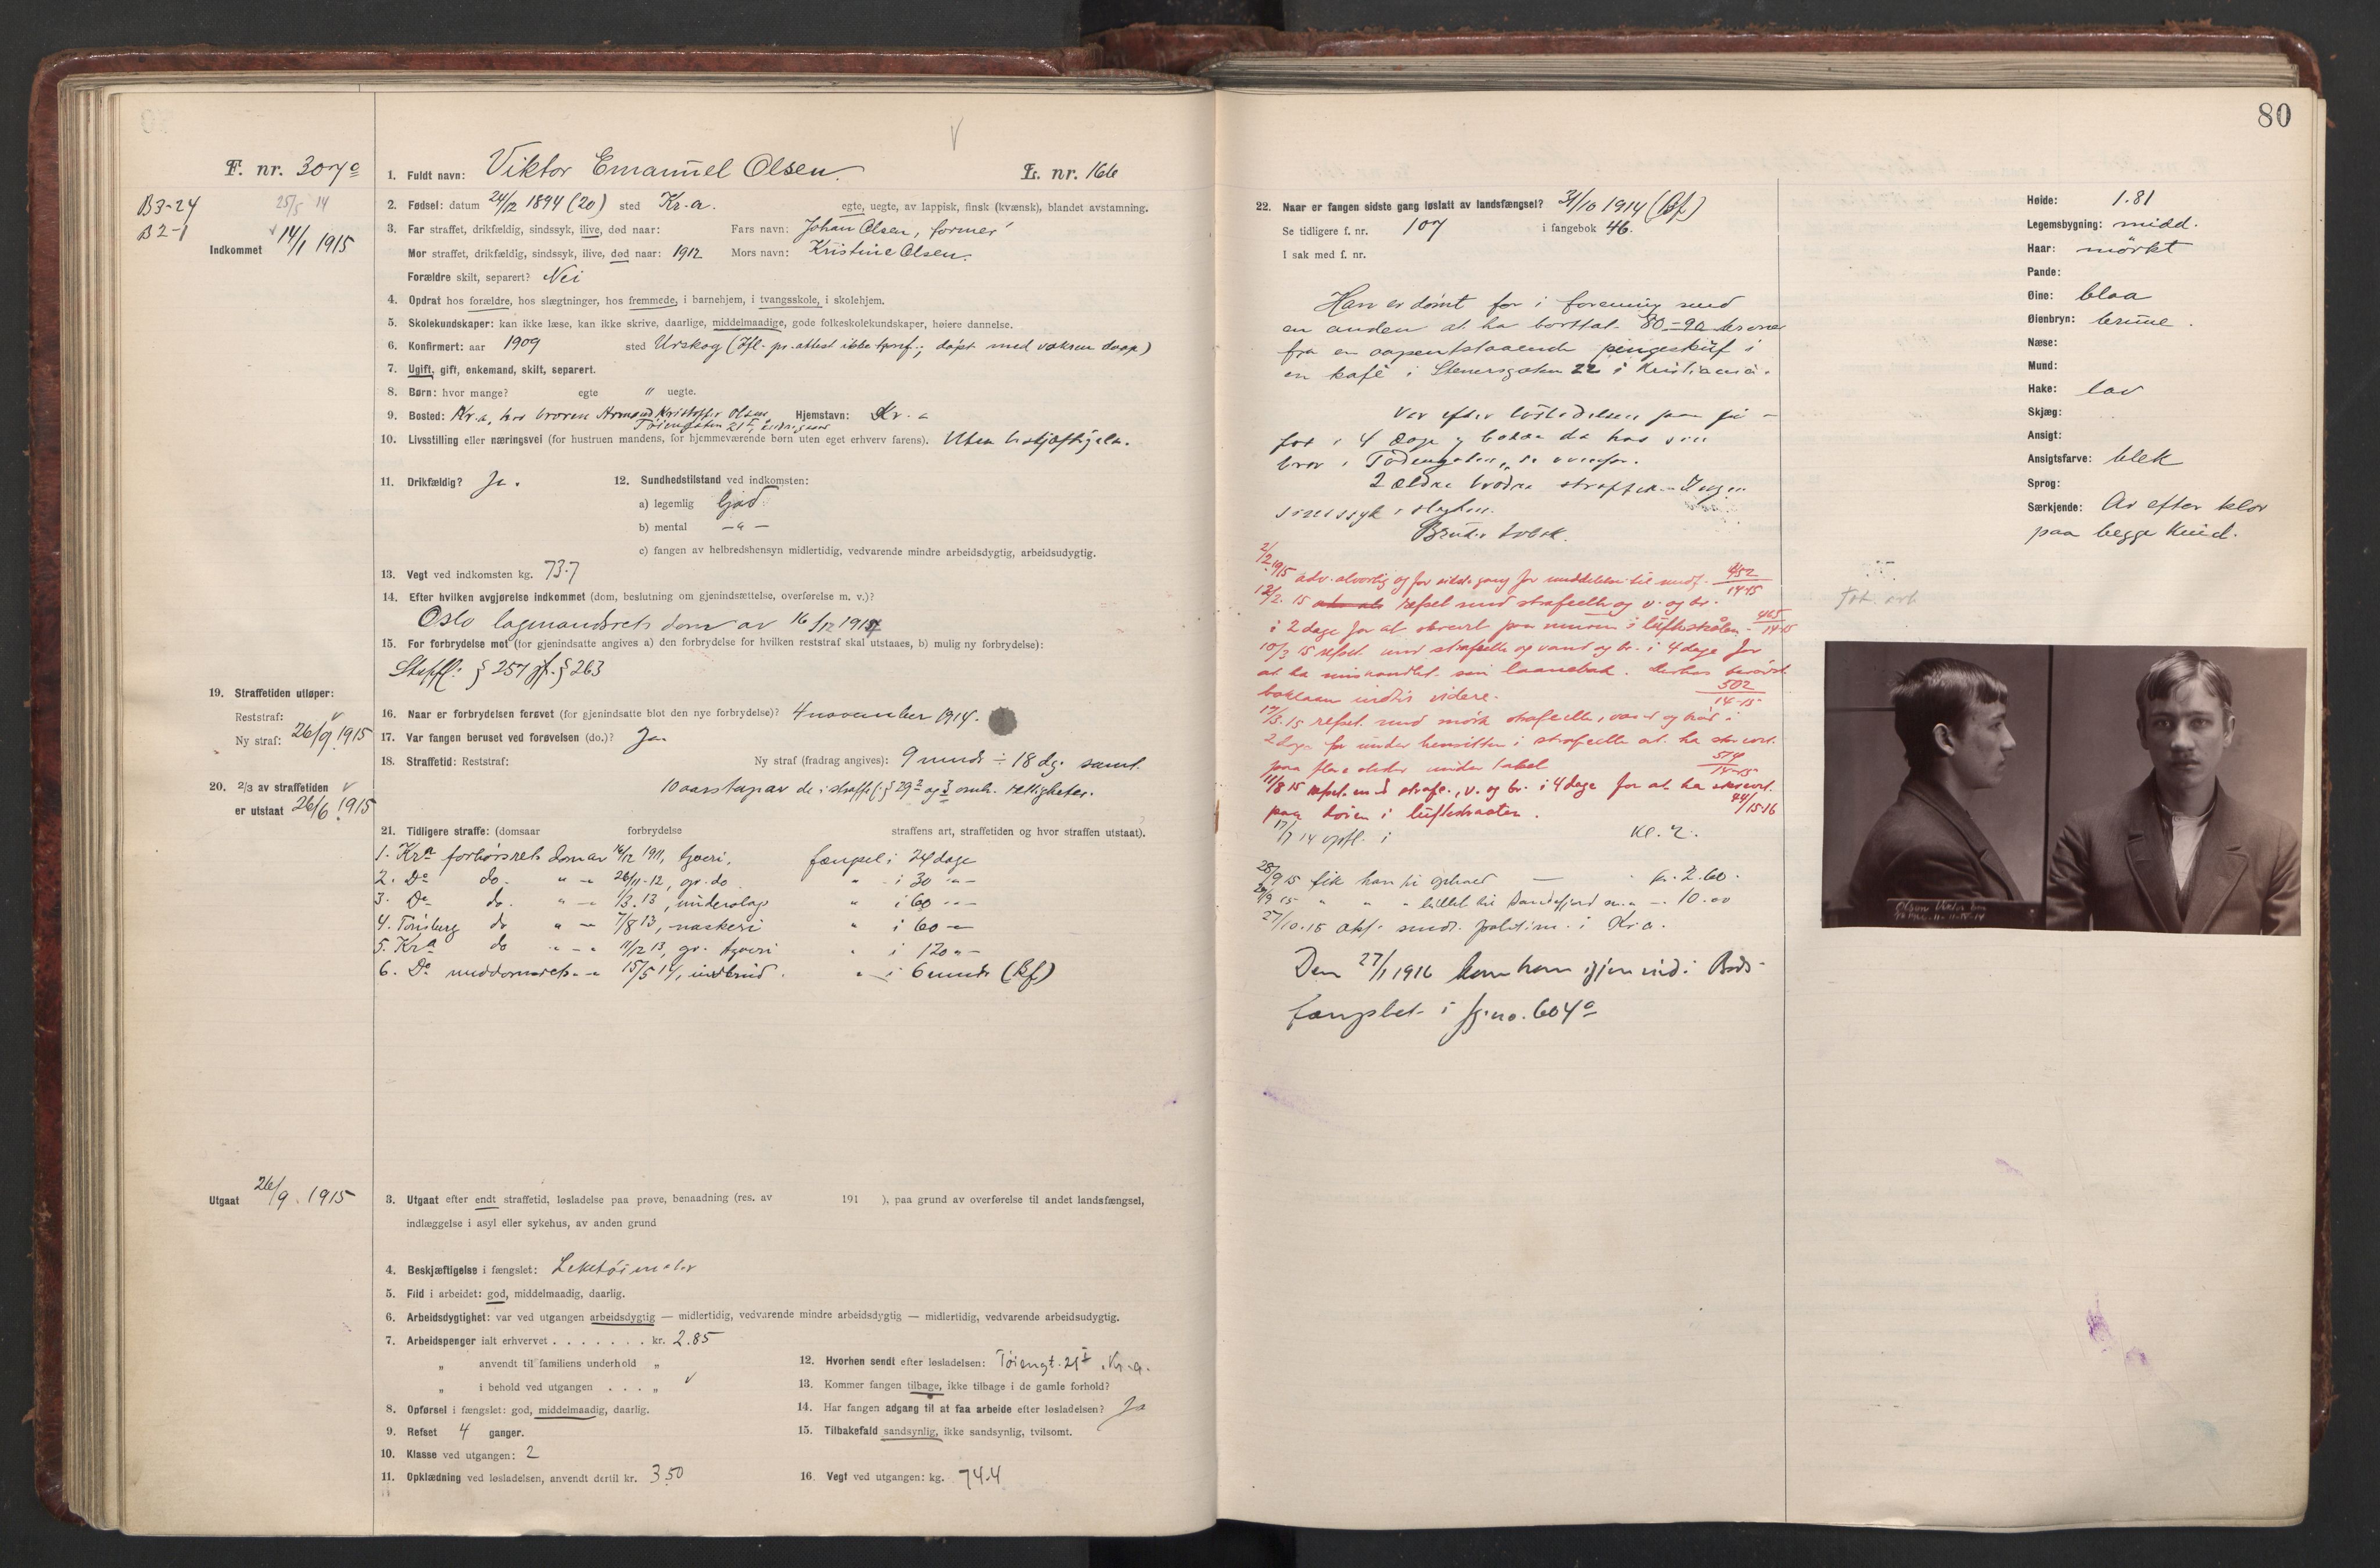 80
F. nr. 307a
1. Fuldt navn: Viktor Emanuel Olsen.
L. nr. 166
B3-24
B2-1
25/5 14
Indkommet 14/1 1915
2. Fødsel: datum 24/12 1894 (20) sted Kr.a. egte, uegte, av lappisk, finsk (kvænsk), blandet avstamning.
3. Far straffet, drikfældig, sindssyk, ilive, død naar: Fars navn: Johan Olsen, former
Mor straffet, drikfældig, sindssyk, ilive, død naar: 1912 Mors navn: Kristine Olsen.
Forældre skilt, separert? Nei
4. Opdrat hos forældre, hos slægtninger, hos fremmede, i barnehjem, i tvangsskole, i skolehjem.
5. Skolekundskaper: kan ikke læse, kan ikke skrive, daarlige, middelmaadige, gode folkeskolekundskaper, høiere dannelse.
6. Konfirmert: aar 1909 sted Urskog (Ifl. pr. attest ikke konf.; døpt med voksen daap)
7. Ugift, gift, enkemand, skilt, separert.
8. Børn: hvor mange? egte " uegte.
9. Bosted: Kr.a, hos broren Armand Kristoffer Olsen, Hjemstavn: Kr.a
Tøiengaten 21 I,
10. Livsstilling eller næringsvei (for hustruen mandens, for hjemmeværende børn uten eget erhverv farens). Uten beskjæftigelse.
11. Drikfældig? Ja.
12. Sundhedstilstand ved indkomsten:
a) legemlig God
b) mental - " -
c) fangen av helbredshensyn midlertidig, vedvarende mindre arbeidsdygtig, arbeidsudygtig.
13. Vegt ved indkomsten kg. 73.7
14. Efter hvilken avgjørelse indkommet (dom, beslutning om gjenindsættelse, overførelse m. v.)?
Oslo lagmandsrets dom av 16/12 1914
15. For forbrydelse mot (for gjenindsatte angives a) den forbrydelse for hvilken reststraf skal utstaaes, b) mulig ny forbrydelse):
Strfl. § 257 jf. § 263
19. Straffetiden utløper:
Reststraf:
Ny straf: 26/9 1915
16. Naar er forbrydelsen forøvet (for gjenindsatte blot den nye forbrydelse)? 4 november 1914.
17. Var fangen beruset ved forøvelsen (do.)? Ja
18. Straffetid: Reststraf: Ny straf (fradrag angives): 9 mndr ÷ 18 dg. samt
10 aars tap av de i straffel. § 29 2 og 3 omh. rettigheter.
20. 2/3 av straffetiden
er utstaat 26/6 1915
21. Tidligere straffe: (domsaar forbrydelse straffens art, straffetiden og hvor straffen utstaat).
1. Kra forhørsrets dom av 16/12 1911, tyveri, fængsel i 24 dage
2. Do do. " - 26/11-12, gr. do " i 30 " -
3. Do do. " - 1/3.13, underslag " i 60 " -
4. Tønsberg do " - 7/8 13, naskeri " i 60 -
5. Kra do " - 11/12 13, gr. tyveri " i 120 " -
6. Do meddomsrets - 15/5 14, indbrud. " i 6 mndr (Bf)
Utgaat 26/9. 1915
3. Utgaat efter endt straffetid, løsladelse paa prøve, benaadning (res. av 191 ), paa grund av overførelse til andet landsfængsel,
indlæggelse i asyl eller sykehus, av anden grund
4. Beskjæftigelse i fængslet: Leketøimaler
5. Flid i arbeidet: god, middelmaadig, daarlig.
6. Arbeidsdygtighet: var ved utgangen arbeidsdygtig — midlertidig, vedvarende mindre arbeidsdygtig — midlertidig, vedvarende arbeidsudygtig.
7. Arbeidspenger ialt erhvervet . . . . . . . kr. 2.85
" anvendt til familiens underhold "
" i behold ved utgangen . . . "
8. Opførsel i fængslet: god, middelmaadig, daarlig.
9. Refset 4 ganger.
10. Klasse ved utgangen: 2
11. Opklædning ved løsladelsen, anvendt dertil kr. 3.50
12. Hvorhen sendt efter løsladelsen: Tøiengt. 21 I, Kr.a.
13. Kommer fangen tilbage, ikke tilbage i de gamle forhold?
14. Har fangen adgang til at faa arbeide efter løsladelsen? Ja
15. Tilbakefald sandsynlig, ikke sandsynlig, tvilsomt.
16. Vegt ved utgangen: kg. 74.4
22. Naar er fangen sidste gang løslatt av landsfængsel? 31/10 1914 (Bf)
Se tidligere f. nr. 107 i fangebok 46.
I sak med f. nr.
Han er dømt for i forening med
en anden at ha borttat 80-90 kroner
fra en aapentstaaende pengeskuf i
en kafé i Stenersgaten 22 i Kristiania.
Var efter løsladelsen paa fri
fot i 4 dage og bodde da hos sin
bror i Tøiengaten, se ovenfor.
2 ældre brødre straffet. Ingen
sindssyk i slegten.
Bruker tobak.
2/2 1915 adv. alvorlig og for sidste gang for meddelelse til medf. 452/14-15
12/2. 15 refset med strafcelle og v. og br.
i 2 dage for at skrevet paa muren i luftestraalen. 465/14-15
10/3 15 refset med strafcelle og vand og br. i 4 dage for
at ha mishandlet sin laanebok.
boklaan indtil videre. 502/14-15
17/3.15 refset med mørk strafcelle, vand og brød i
2 dage for under hensitten i strafcelle at ha skrevet
paa flere steder under tabel 514/14-15
11/8 15 refset med strafc., v. og br. i 4 dage for at ha skrevet
paa døren i luftestraalen. 44/15-16
17/7 14 opfl. i Kl. 2.
28/9 15 fik han i behold — kr. 2.60.
29/9 15 " " " billet til Sandefjord m.m - 10.00
27/10.15 att. sendt politim. i Kr.a.
Den 27/1 1916 kom han igjen ind i Bods-
fængslet i fg. no. 604a
Høide: 1.81
Legemsbygning: midd.
Haar: mørkt
Pande:
Øine: blaa
Øienbryn: brune.
Næse:
Mund:
Hake: lav
Skjæg:
Ansigt:
Ansigtsfarve: blek
Sprog:
Særkjende: Ar efter klor
paa begge kind.